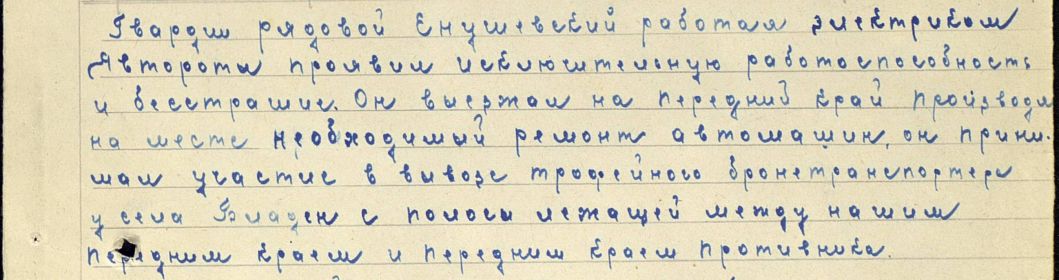 Гвардии рядовой Енушевский работая электриком
Автороты проявил исключительную работоспособность
и бесстрашие. Он выезжал на передний край производя
на месте необходимый ремонт автомашин, он прини-
мал участие в вывозе трофейного бронетранспортера
у села с полосы лежащей между нашим
передним краем и передним краем противника.